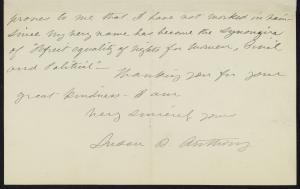 proves to me that I have not worked in vain -
since my very name has become the Synonym
of "Perfect equality of rights for women, Civil
and Political" - Thanking you for your
great kindness - I am
Very sincerely yours
Susan B. Anthony